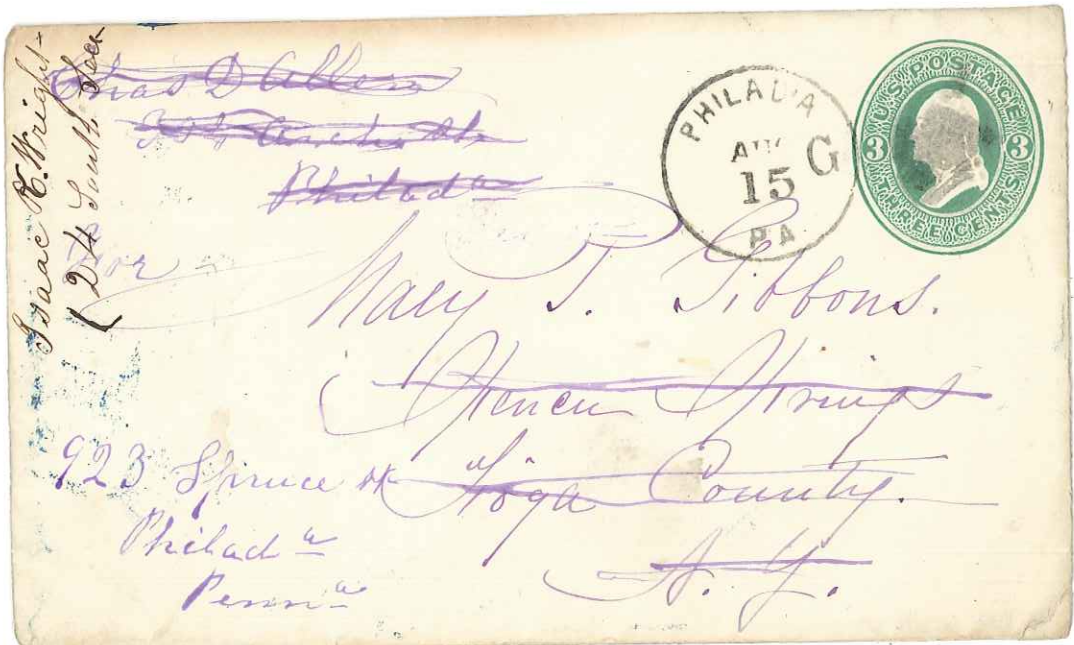 Isaac R. Wright
124 South Sec
Chas D Allen
Arch St
Philad a
PHILADA
AUG
15
G
PA
U.S. POSTAGE
3 3
THREE CENTS
For
Mary T. Gibbons.
Spencer Springs
Tioga County.
N. Y.
923 Spruce St
Philad a
Penn a